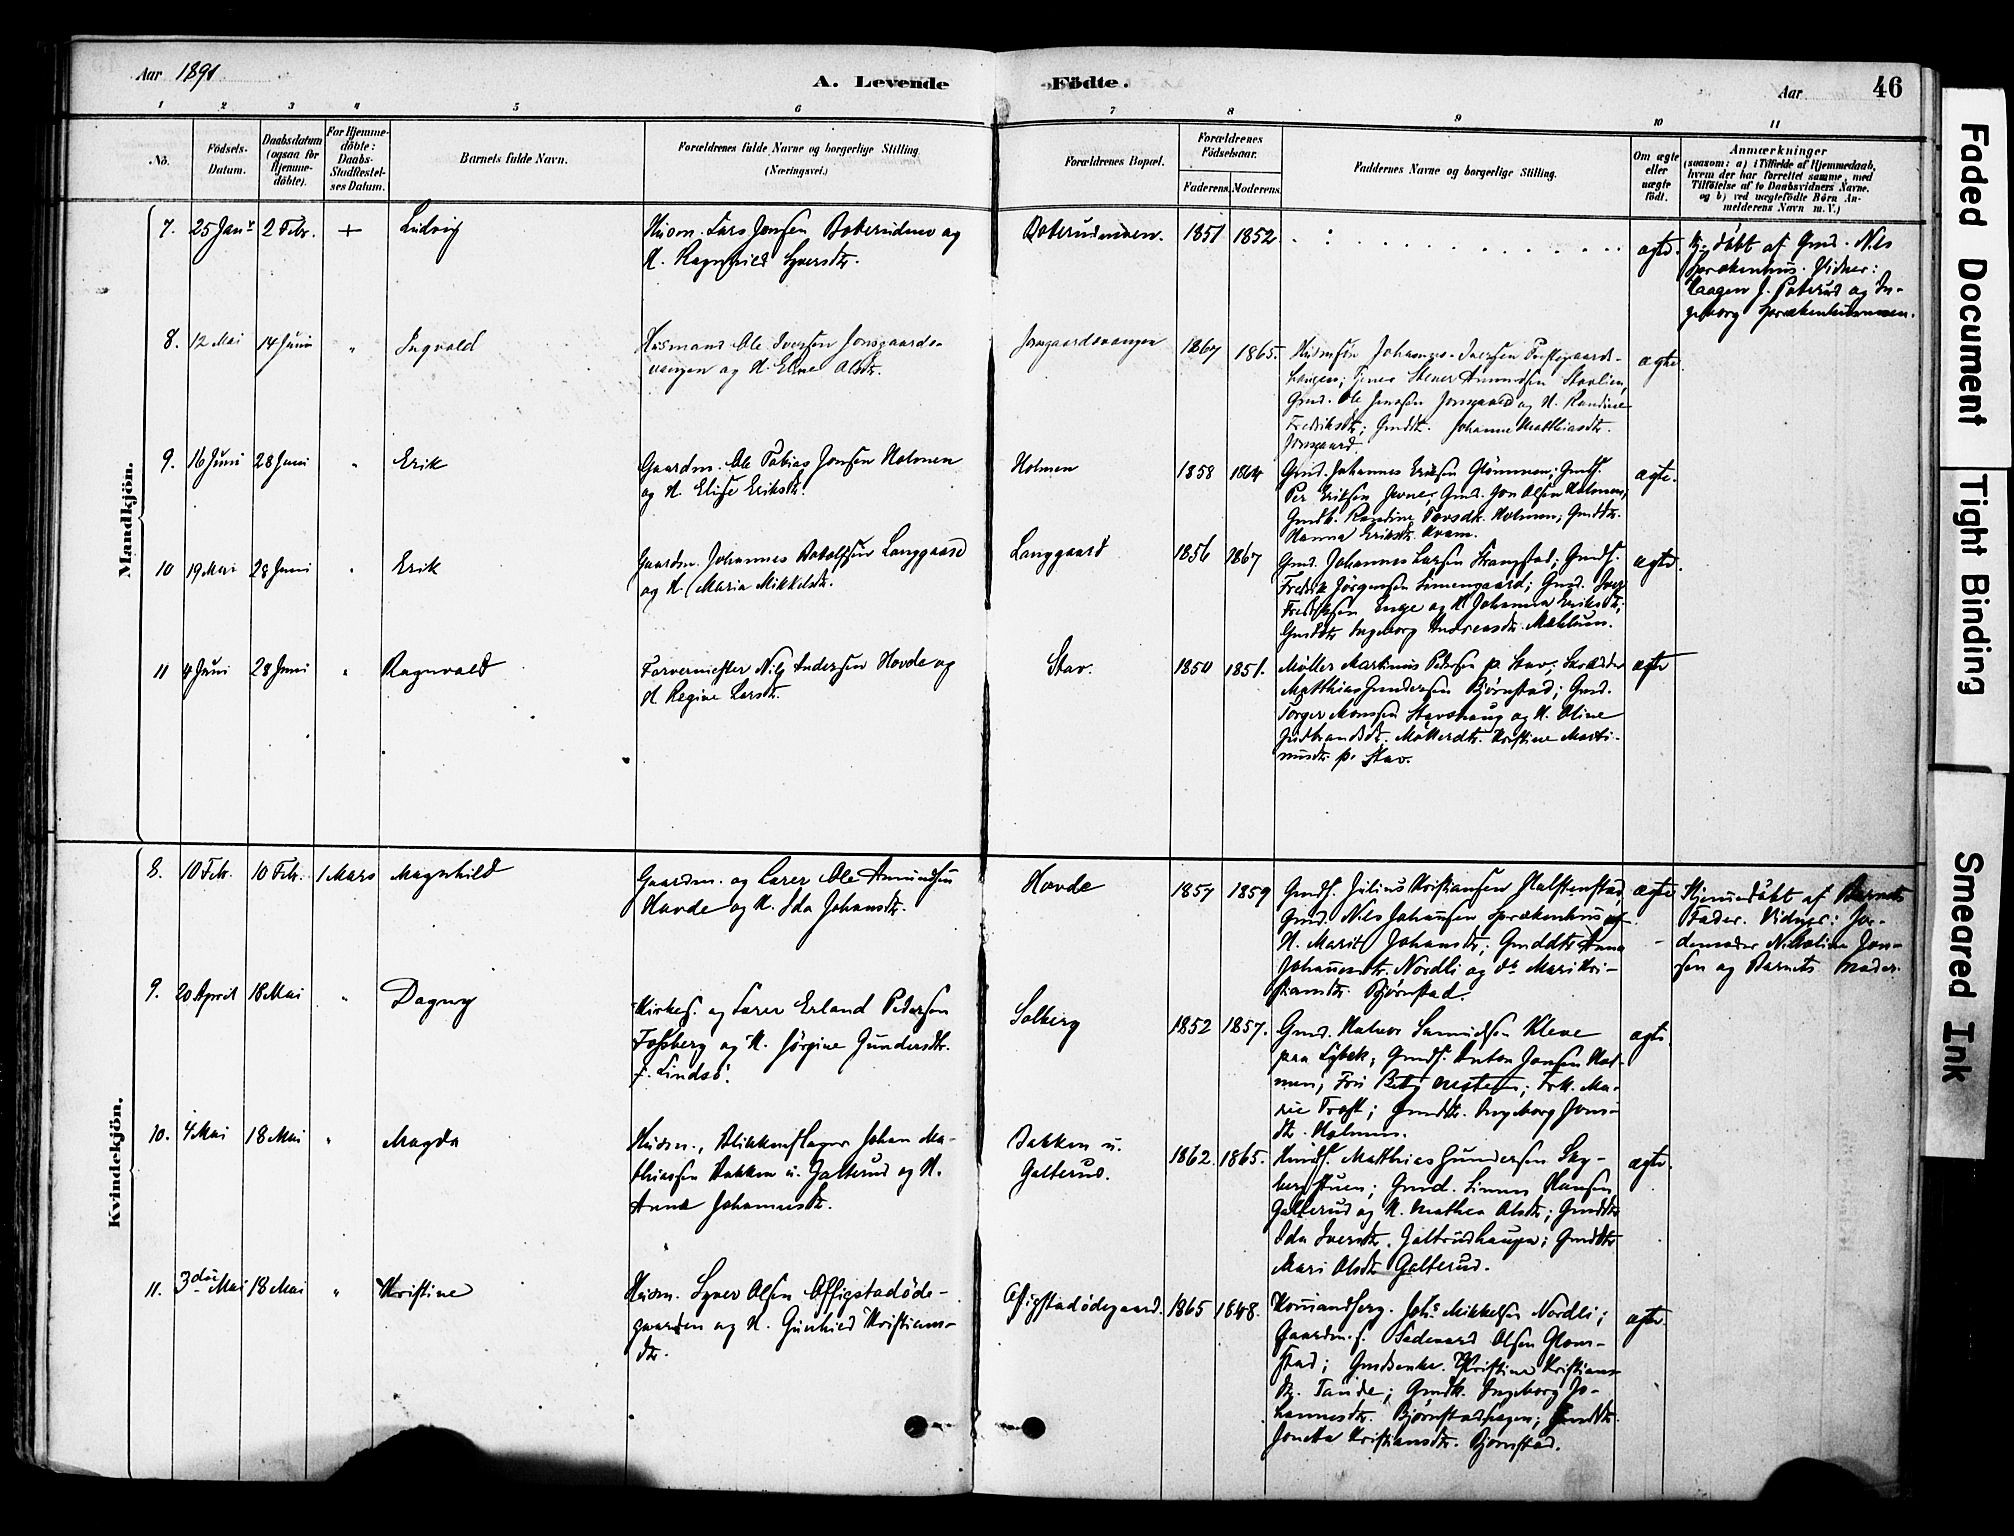 Aar 1891
A. Levende Fødte.
Aar
46
1 2 3 4 5 6 7 8 9 10 11
No.
Fødsels-Datum.
Daabsdatum (ogsaa for Hjemme-døbte).
For Hjemme-døbte: Daabs-Stadfæstel-ses Datum.
Barnets fulde Navn.
Forældrenes fulde Navne og borgerlige Stilling.
(Næringsvei.)
Forældrenes Bopæl.
Forældrenes Fødselsaar.
Faderens. Moderens.
Faddernes Navne og borgerlige Stilling.
Om ægte eller uægte født.
Anmærkninger
(saasom: a) i Tilfælde af Hjemmedaab, hvem der har forrettet samme, med Tilføielse af to Daabsvidners Navne, og b) ved uægtefødte Børn An-melderens Navn m. V.)
Mandkjøn.
7. 25 Janr 2 Febr. + Ludvig
Husm. Lars Jensen og
K. Ragnhild Syversdtr.
1851 1852
ægte.
Hj. døbt af Grd. Nils
Sprækenhus. Vidner:
8. 12 Mai 14 Juni " Ingvald
Husmand Ole Iversen Jonsgaards-
vangen og K. Eline Olsdtr.
Jonsgaardsvangen
1867 1865.
Johannes Iversen
Grd. Ole Jensen Jonsgaard og K. Randine
Fredriksdtr; Grddtr. Johanne Matthiasdtr.
Jonsgaard.
ægte
9. 16 Juni 28 Juni " Erik
Gaardm. Ole Tobias Jonsen Holmen
og K. Elise Eriksdtr.
Holmen
1858 1864
Grd. Johannes Eriksen Glømmen; Grds.
Per Eriksen Jevne; Grd. Jon Olsen Holmen;
Grdk. Randine Tovsdtr. Holmen; Grddtr.
Hanna Eriksdtr. Kvam.
ægte.
10 19 Mai 28 Juni " Erik
Gaardm. Johannes Langgaard
og K. Maria Mikkelsdtr.
Langgaard
1856 1867
Grd. Johannes Larsen Strangstad; Grds.
Fredrik Jørgensen Simengaard; Grd. Iver
Fredriksen Enge og K. Johanna Eriksdtr;
Grddtr Ingeborg Andreasdtr. Mæhlum.
ægte.
11 4 Juni 28 Juni " Ragnvald
Farvermester Nils Andersen Hovde og
K Regine Larsdtr.
Stav.
1850 1851.
Møller Martinus Pedersen p. Stav; Skrædder
Matthias Gundersen Bjørnstad; Grd.
Torger Monssen Stavshaug og K. Oline
Gudbrandsdtr. Møllerdtr. Kristine Marti-
nusdtr. p. Stav.
ægte
Kvindekjøn.
8. 10 Febr. 10 Febr. 1 Mars Magnhild
Gaardm. og Lærer Ole Amundsen
Hovde og K. Ida Johansdtr.
Hovde
1857 1859
Grds. Julius Kristiansen Halstenstad,
Grd. Nils Johansen Sprækenhus og
K. Marit Johansdtr.; Grddtr Anna
Johannesdtr. Nordli og do Mari Kri-
stiansdtr. Bjørnstad.
ægte
Hjemmedøbt af Barnets
Fader. Vidner: Jor-
demoder Nikoline Jon-
sen og Barnets Moder.
9. 20 April 18 Mai " Dagny
Kirkes. og Lærer Erland Pedersen
Fossberg og K. Jørgine Gundersdtr.
f. Lindsø.
Solberg
1852 1857.
Grd. Halvor Samuelsen Kleve
paa Lybek; Grds. Anton Jonsen Hol-
men; Fru Betsy; Frk. Ma-
rie Trost; Grddtr. Ingeborg Jons-
dtr. Holmen.
ægte.
10. 4 Mai 18 Mai " Magda
Husm., Blikkenslager Johan Ma-
thiassen Bakken u. Galterud og K.
Anna Johannesdtr.
Bakken u.
Galterud.
1862. 1865.
Matthias Gundersen Sky-
bergstuen; Grd. Simen Hansen
Galterud og K. Mathea Olsdtr; Grddtr
Ida Iversdtr. Galterudhaugen; Grddtr
Mari Olsdtr Galterud.
ægte.
11. 3die Mai 18 Mai " Kristine
Husm. Syver Olsen Offigstadøde-
gaarden og K. Gunhild Kristians-
dtr.
Offigstadødegaard.
1865 1848.
Johs Mikkelsen Nordli;
Gaardm.s. Olsen Glom-
stad; Grdenke. Kristine Kristians-
dtr. Tande; Grddtr. Ingeborg Jo-
hannesdtr. Bjørnstadhagen; Grddtr.
Jonetta Kristiansdtr. Bjørnstad.
ægte
Faded Document
Tight Binding
Smeared Ink